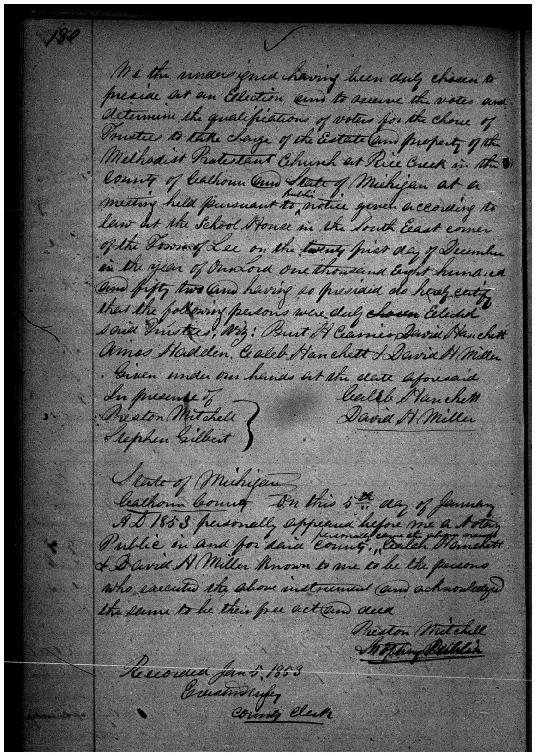 180
We the undersigned having been duly chosen to
preside at an Election and to receive the votes and
determine the qualifications of voters for the choice of
Trustees to take charge of the Estate and property of the
Methodist Protestant Church at Rice Creek in the
County of Calhoun and State of Michigan at a
meeting held pursuant to public notice given according to
law at the School House in the South East corner
of the Town of Lee on the twenty first day of December
in the year of Our Lord one thousand Eight hundred
and fifty two and having so presided do hereby certify
that the following persons were duly Elected
said Trustees, Viz: Burt H David Hanchett
Amos Hadden, Caleb Hanchett & David H Miller
Given under our hands at the date aforesaid
In presence of Caleb Hanchett
Preston Mitchell David H Miller
Stephen Gilbert
State of Michigan
Calhoun County On this 5th day of January
AD 1853 personally appeared before me a Notary
Public in and for said County, personally came the above named Caleb Hanchett
& David H Miller known to me to be the persons
who executed the above instrument and acknowledged
the same to be their free act and deed
Preston Mitchell
Notary Public
Recorded Jan 5, 1853
County Clerk